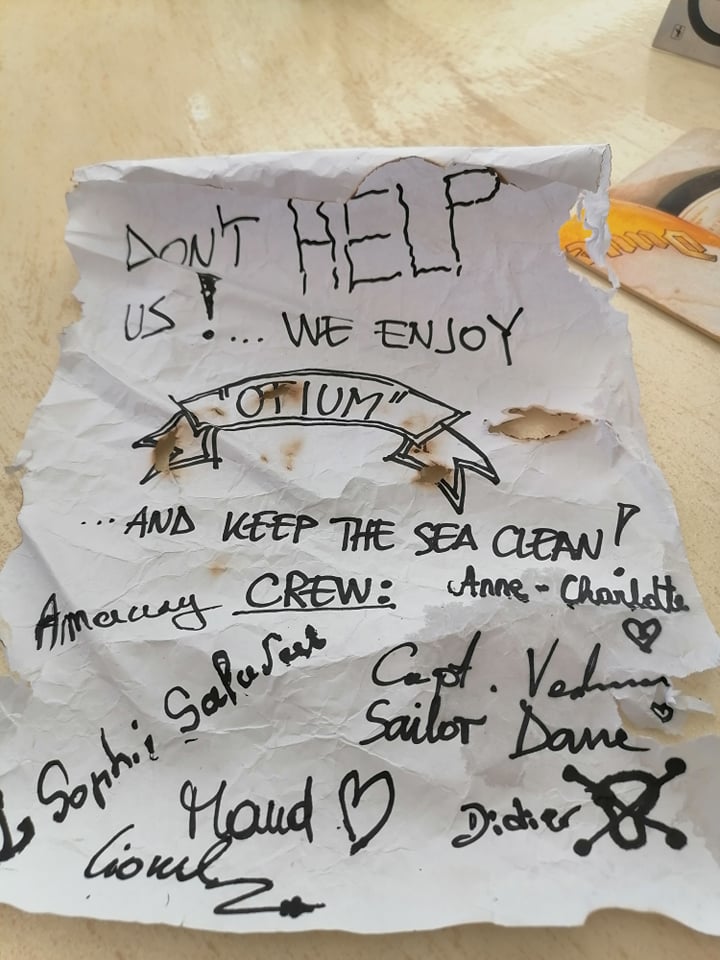 DON'T HELP
US! ... WE ENJOY
"OTIUM"
...AND KEEP THE SEA CLEAN!
CREW:
Amaury
Anne-Charlotte
Sophie
Capt.
Sailor
Maud
Didier
Lionel